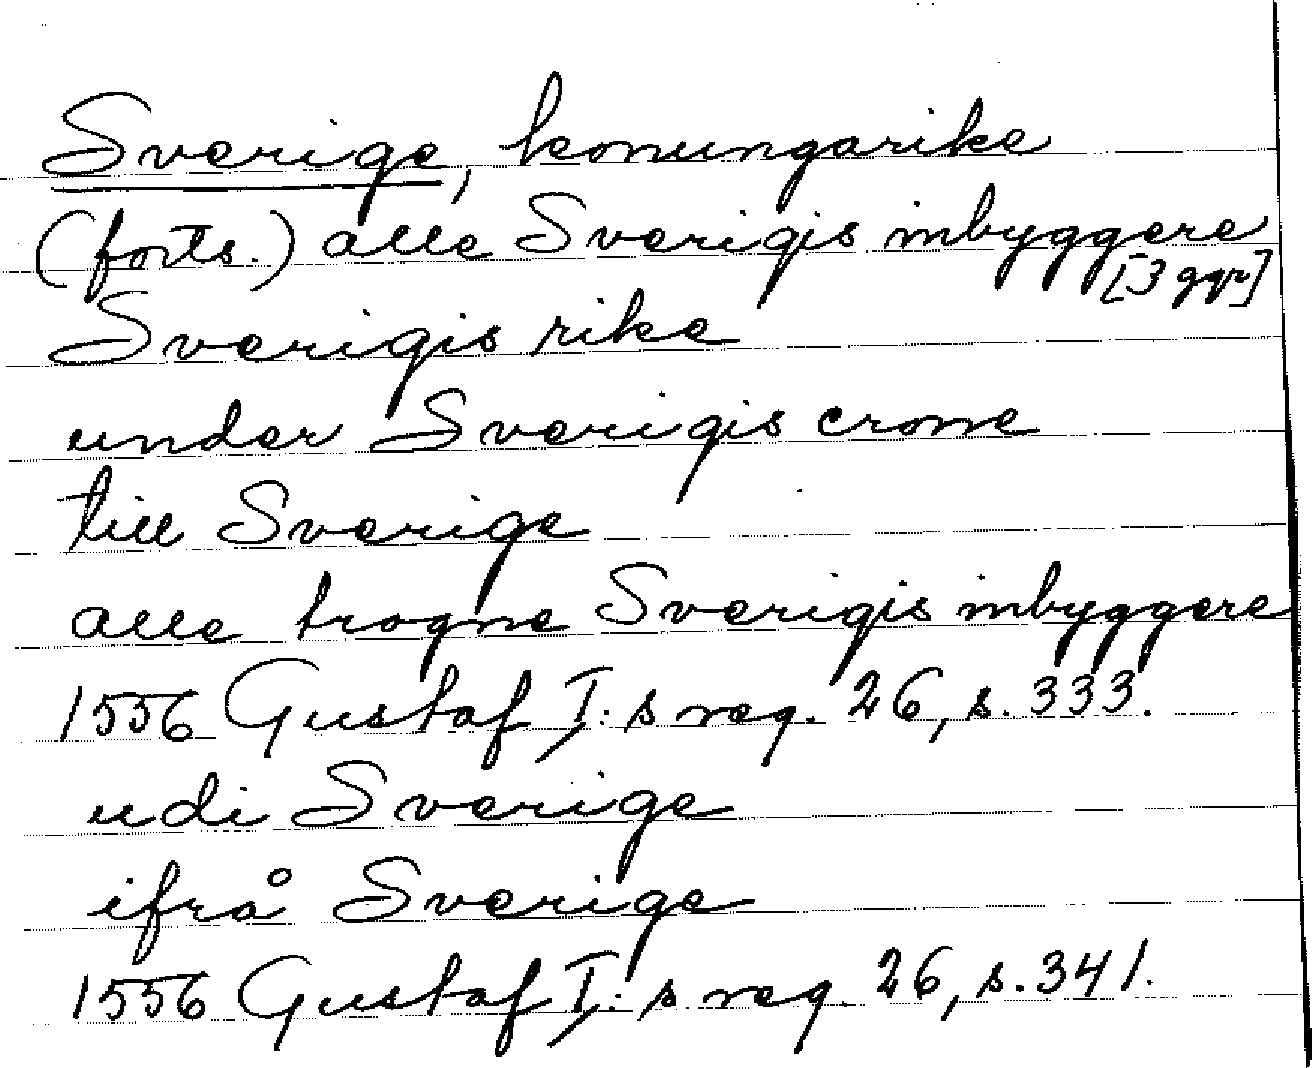 Sverige, konungarike
(forts.) alle Sverigis inbyggere
[3 ggr]
Sverigis rike
under Sverigis crone
till Sverige
alle trogne Sverigis inbyggere
1556 Gustaf I:s reg. 26, s. 333.
udi Sverige
ifrå Sverige
1556 Gustaf I:s reg. 26, s. 341.